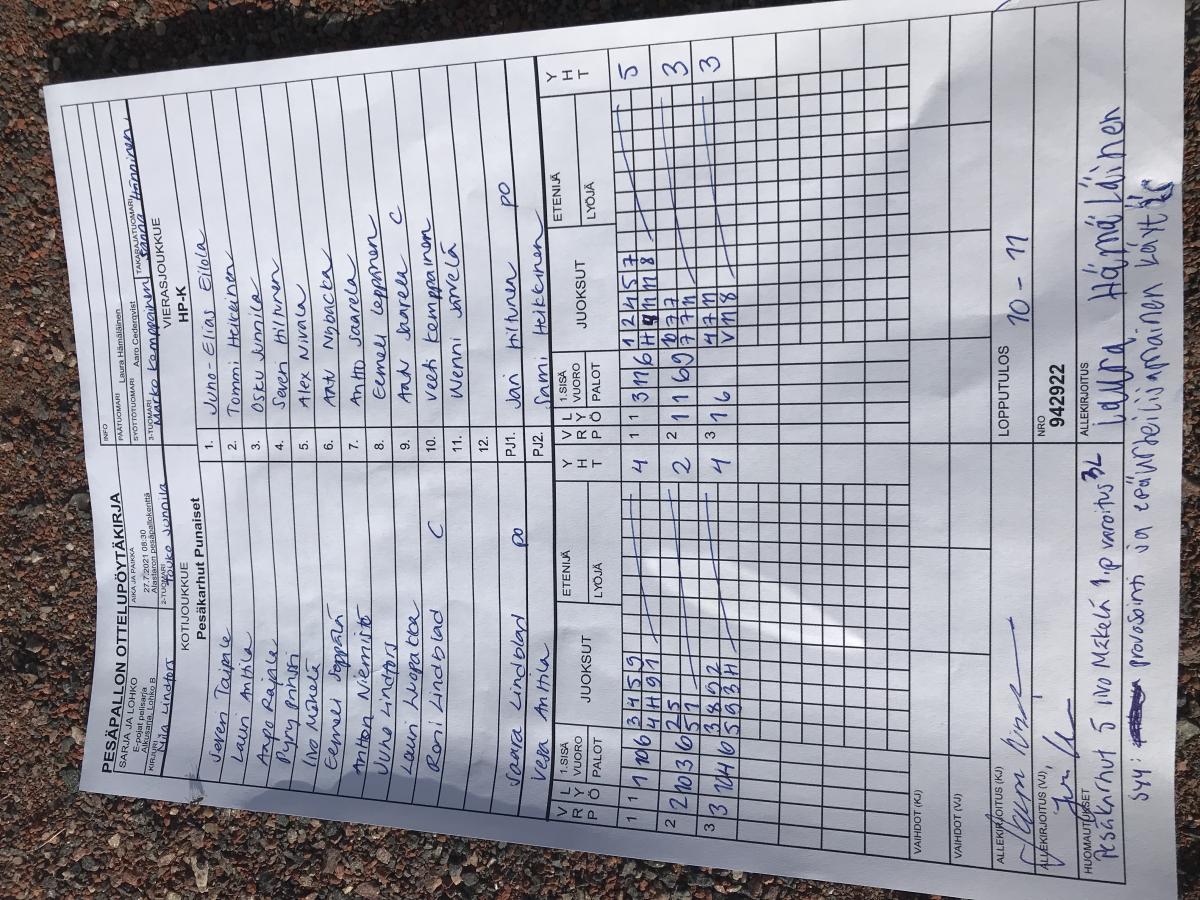 PESÄPALLON OTTELUPÖYTÄKIRJA
SARJA JA LOHKO
E-pojat pelisarja
Alkusarja, Lohko B
AIKA JA PAIKKA
27.7.2021 08:30
Alastaron pesäpallokenttä
INFO
PÄÄTUOMARI Laura Hämäläinen
SYÖTTÖTUOMARI Aaro Cederqvist
KIRJURI Lindfors
2-TUOMARI Touko Junnila
3-TUOMARI Marko Kemppainen
TAKARAJATUOMARI Sanna Hänninen
KOTIJOUKKUE
Pesäkarhut Punaiset
VIERASJOUKKUE
HP-K
Joren Taipale 1. Juho-Elias Eilola
Lauri Anttila 2. Tommi Heikkinen
Aapo Rajala 3. Osku Junnila
Pyry 4. Seven Hiltunen
Iivo Mäkelä 5. Alex Nivala
Eemeli Seppälä 6. Antti Nybacka
Anton Niemistö 7. Antto Saarela
Juho Lindfors 8. Eemeli Leppänen
Lauri 9. Aatu Saarela C
Roni Lindblad C 10. Veeti Kemppainen
11. Wenni Järvelä
12.
Lindblad PO PJ1. Jari Hiltunen PO
Vesa Anttila PJ2. Sami Heikkinen
V R P L Y Ö 1.SISÄ VUORO PALOT JUOKSUT ETENIJÄ LYÖJÄ Y H T V R P L Y Ö 1.SISÄ VUORO PALOT JUOKSUT ETENIJÄ LYÖJÄ Y H T
1 1 1 10 6 3 4 5 9 4 1 1 3 11 6 1 2 4 5 7 5
4 H 9 1 H 9 11 11 8
2 2 10 3 6 2 5 2 2 1 1 6 9 10 7 7 3
5 1 7 7 11
3 3 10 4 6 3 8 9 2 4 3 1 6 4 7 11 3
5 9 3 H V 11 8
VAIHDOT (KJ)
VAIHDOT (VJ)
ALLEKIRJOITUS (KJ)
LOPPUTULOS 10 - 11
ALLEKIRJOITUS (VJ)
NRO
942922
HUOMAUTUKSET
ALLEKIRJOITUS Laura Hämäläinen
Pesäkarhut 5 Iivo Mäkelä 1.p varoitus 3L
Syy: provosointi ja epäurheilijamainen käytös